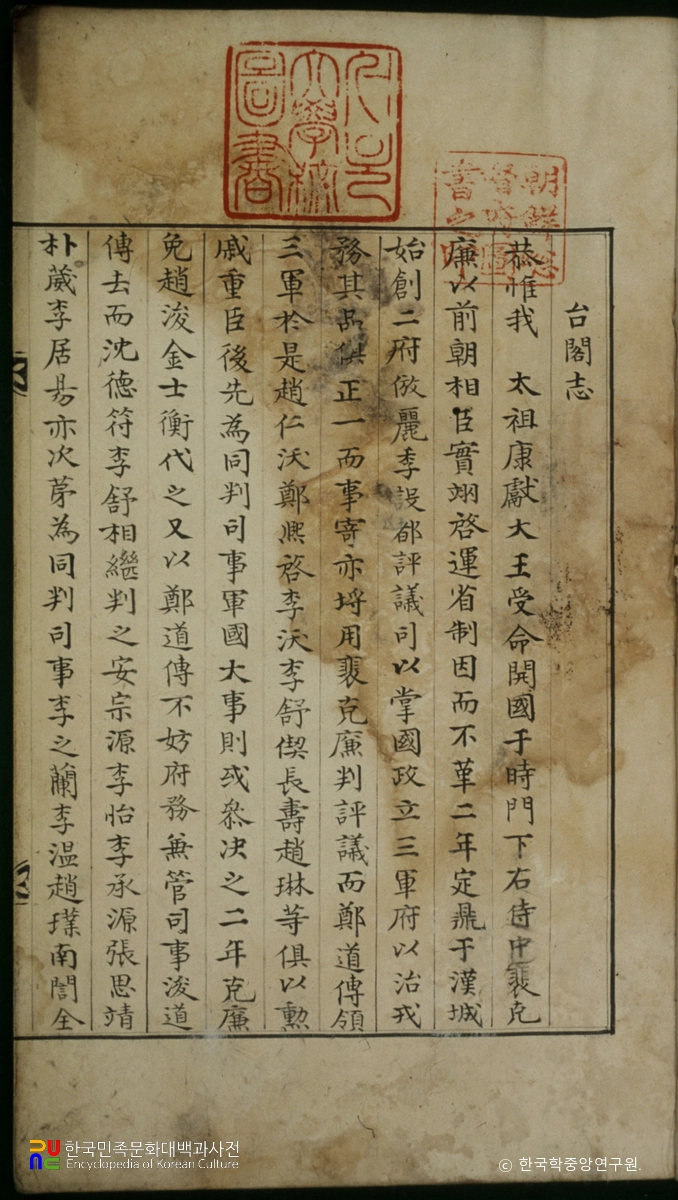 서울大學校圖書
朝鮮總督府圖書之印
台閣志
恭惟我 太祖康獻大王受命開國于時門下右侍中裵克
廉以前朝相臣實翊啓運省制因而不革二年定鼎于漢城
始創二府倣麗季設都評議司以掌國政立三軍府以治戎
務其品俱正一而事寄亦埒用裵克廉判評議而鄭道傳領
三軍於是趙仁沃鄭熈啓李沃李舒偰長壽趙琳等俱以勳
戚重臣後先為同判司事軍國大事則或叅决之二年克廉
免趙浚金士衡代之又以鄭道傳不妨府務兼管司事浚道
傳去而沈德符李舒相繼判之安宗源李怡李承源張思靖
朴葳李居昜亦次苐為同判司事李之蘭李溫趙璞南誾全
한국민족문화대백과사전
Encyclopedia of Korean Culture
© 한국학중앙연구원.